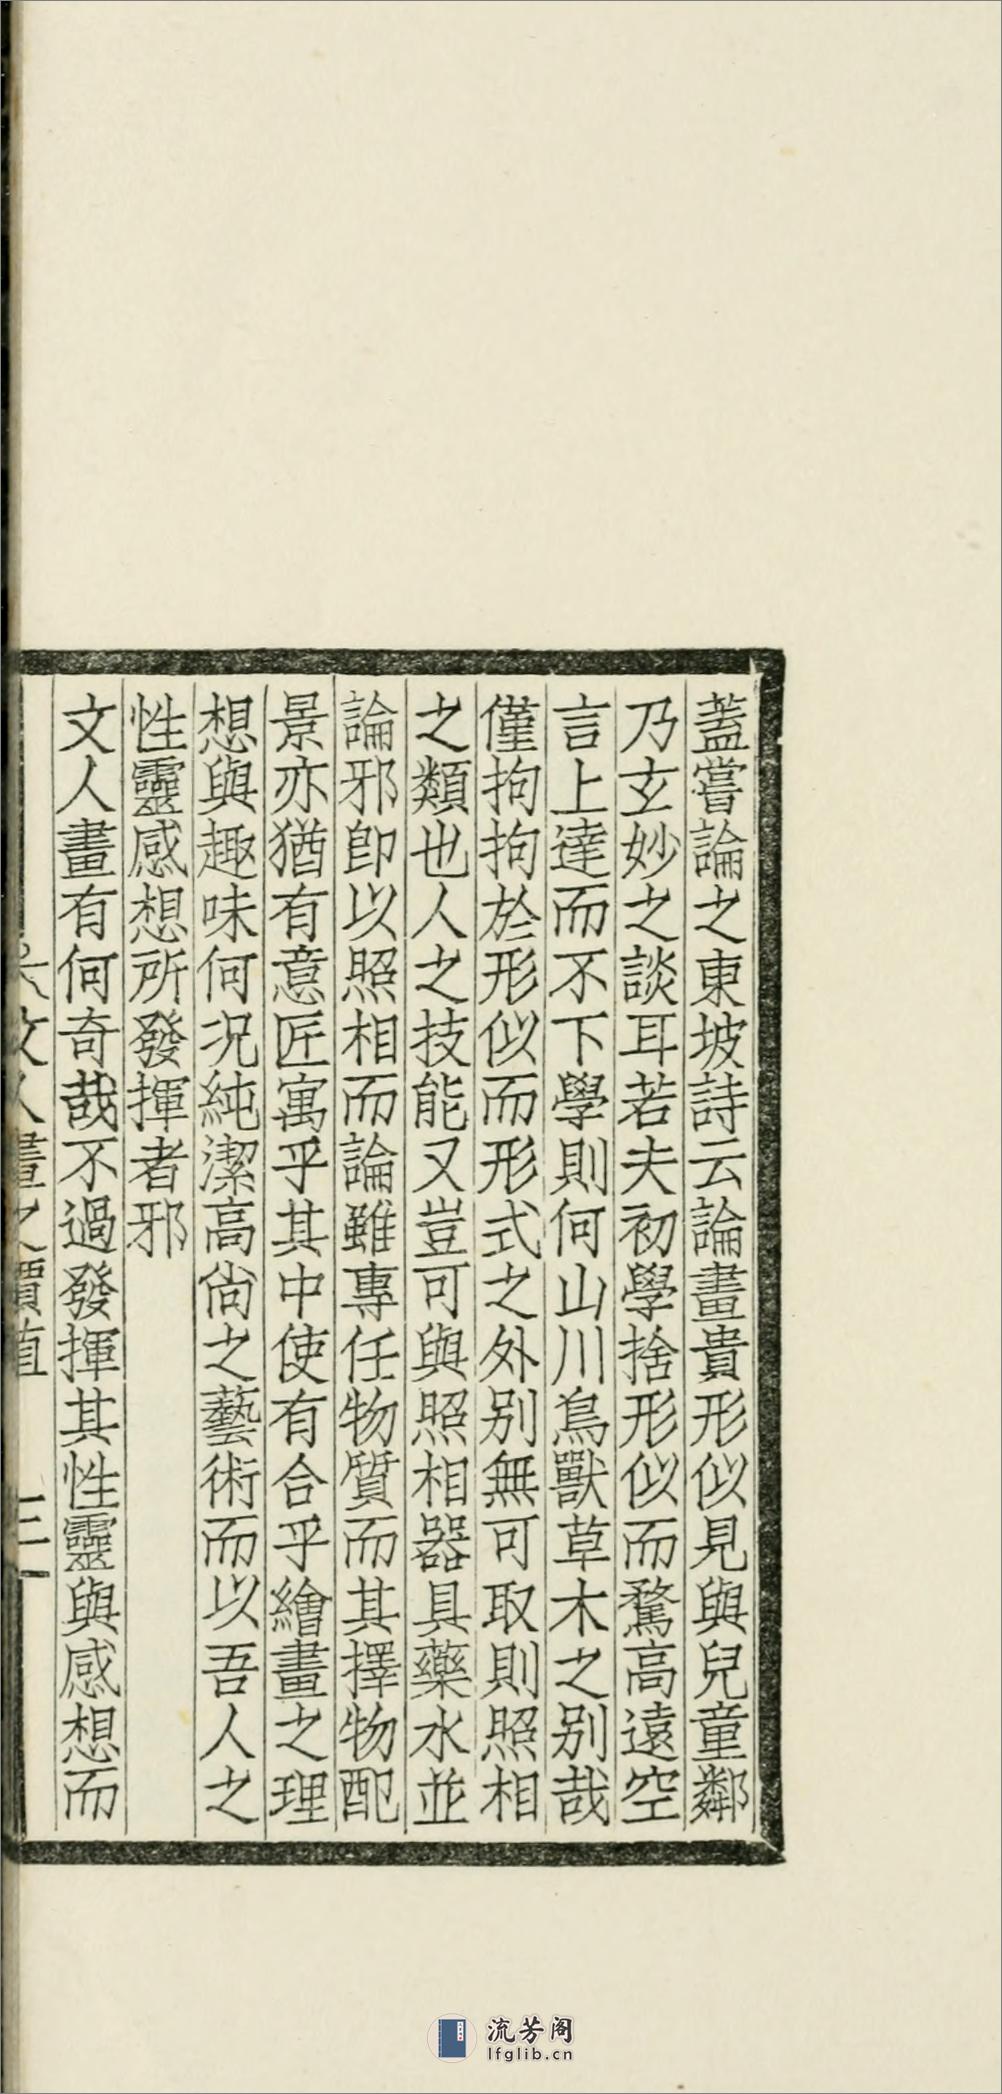 蓋嘗論之東坡詩云論畫貴形似見與兒童鄰
乃玄妙之談耳若夫初學捨形似而騖高遠空
言上達而不下學則何山川鳥獸草木之别哉
僅拘拘於形似而形式之外别無可取則照相
之類也人之技能又豈可與照相器具藥水並
論邪卽以照相而論雖專任物質而其擇物配
景亦猶有意匠寓乎其中使有合乎繪畫之理
想與趣味何况純潔高尙之藝術而以吾人之
性靈感想所發揮者邪
文人畫有何奇哉不過發揮其性靈與感想而
文人畫之價值
流芳阁
lfglib.cn